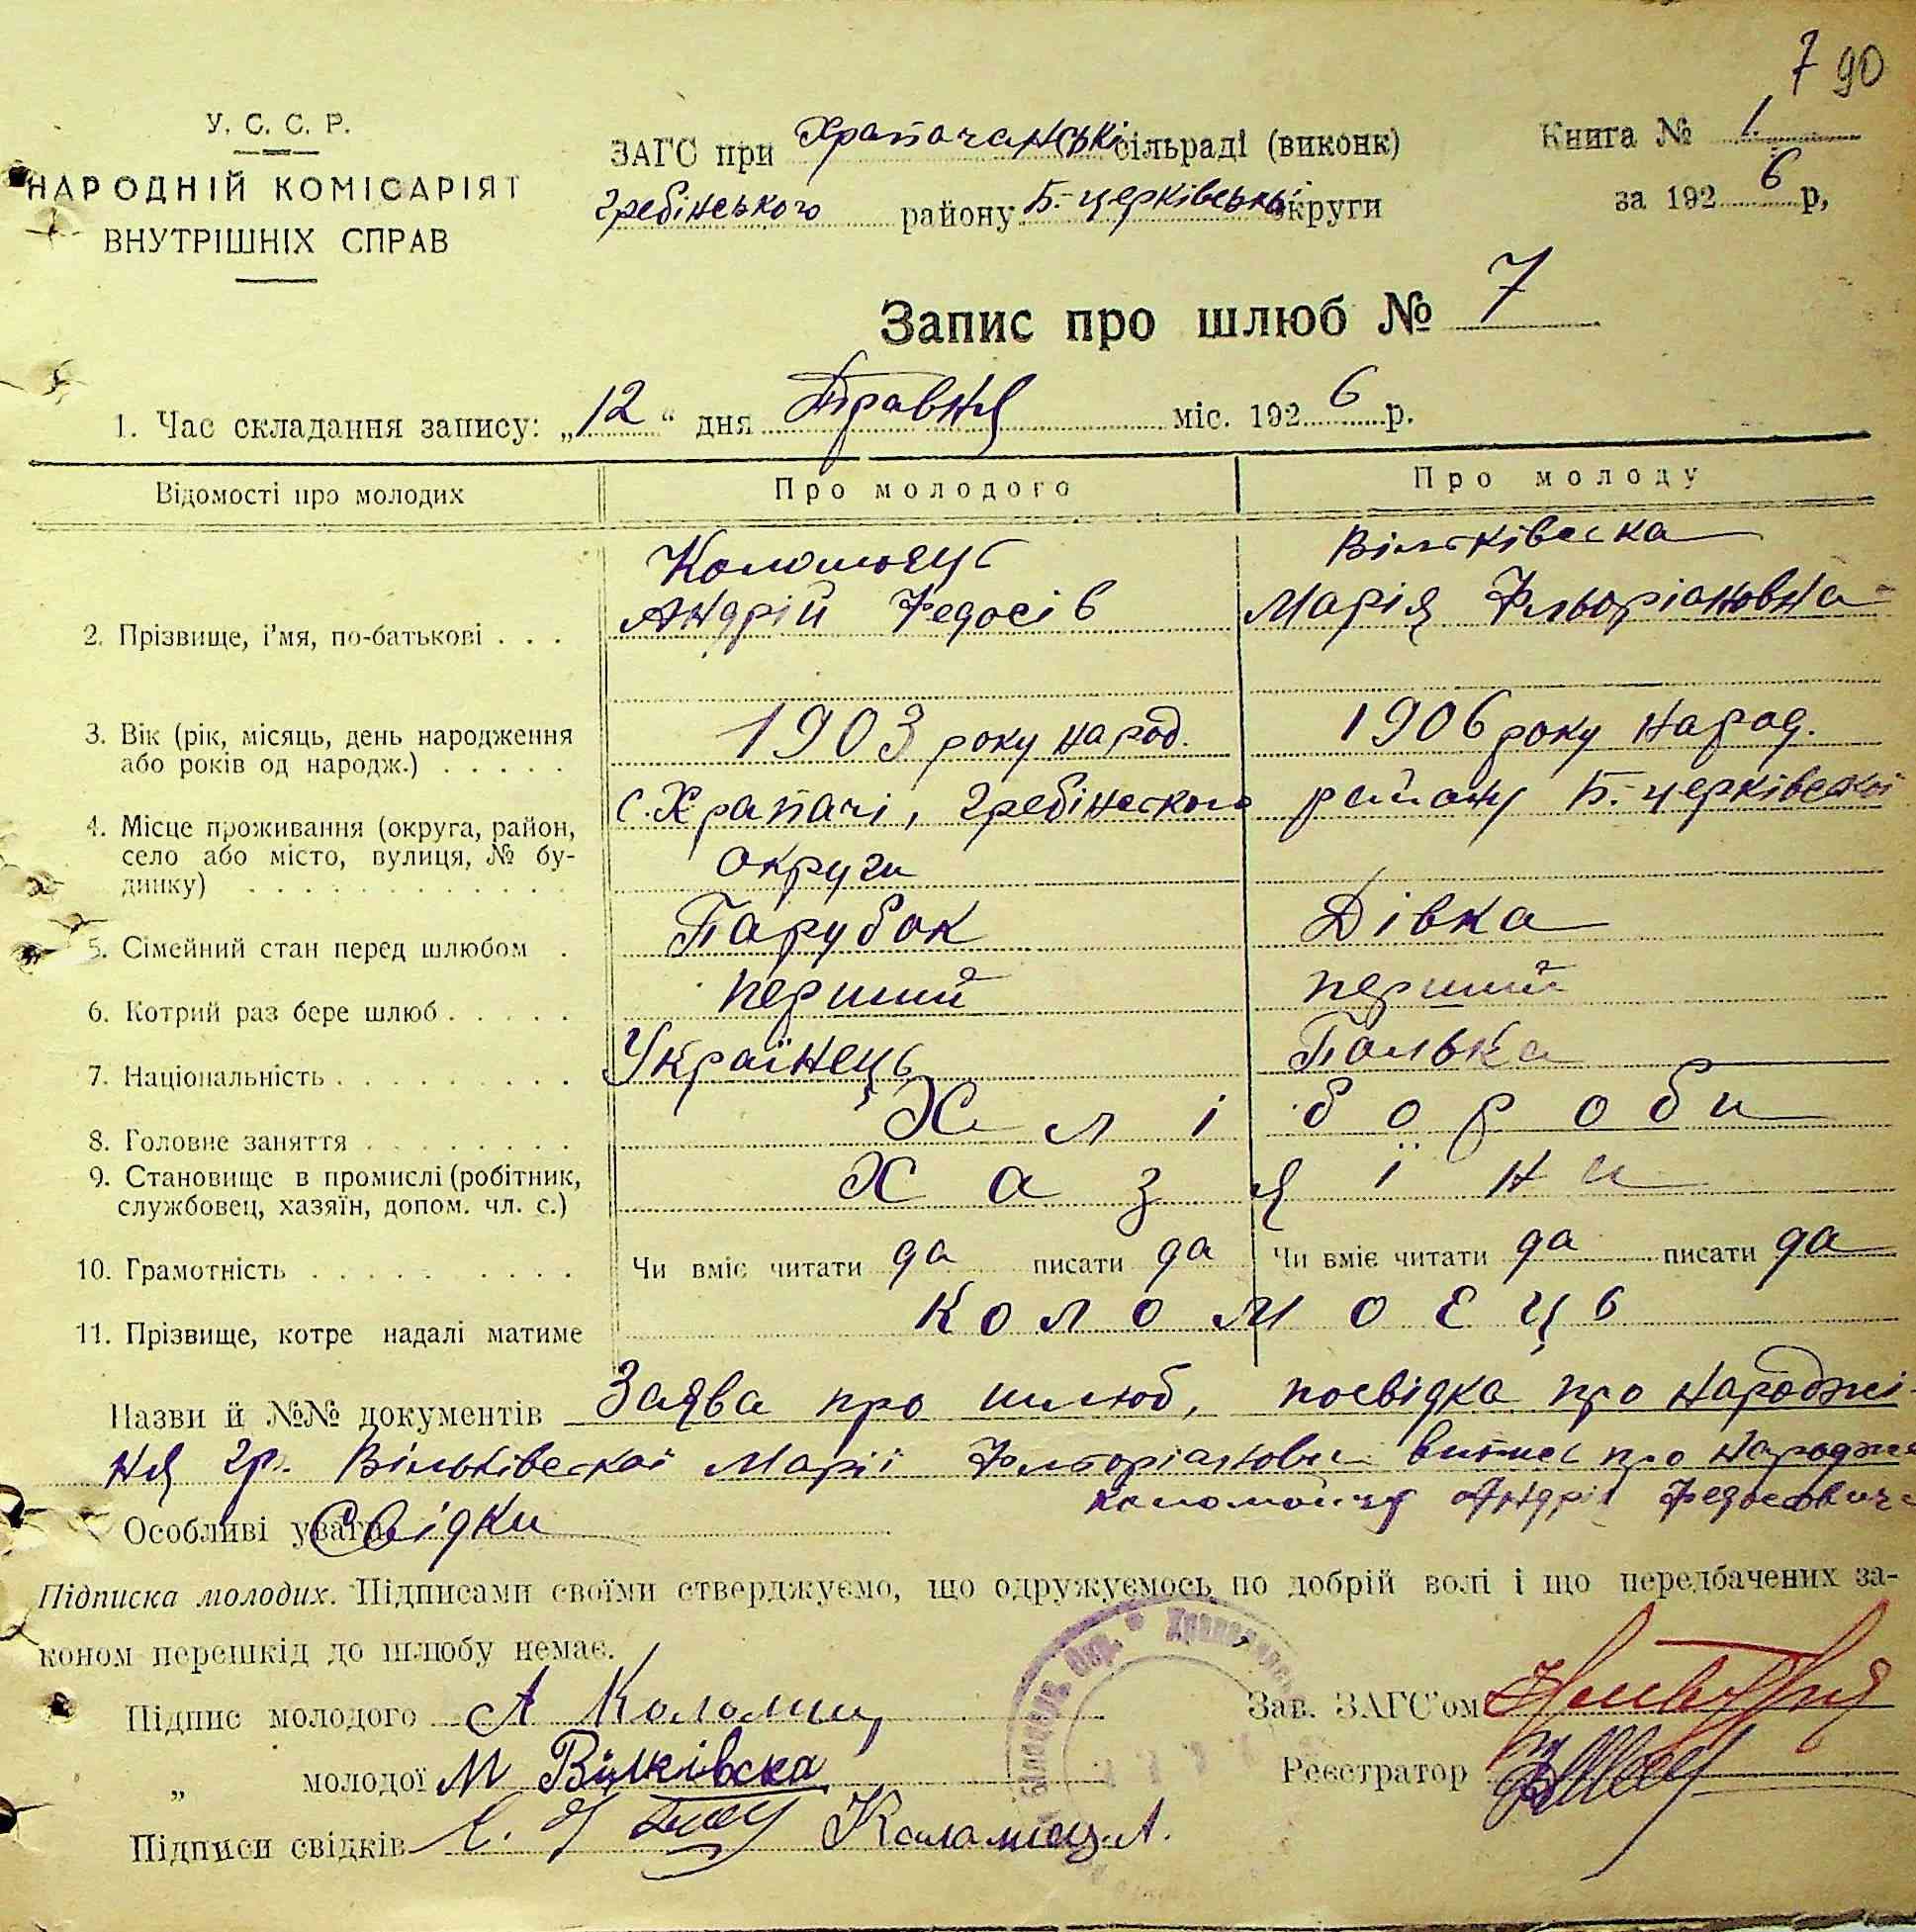 7 90
У. С. С. Р.
НАРОДНІЙ КОМІСАРІЯТ
ВНУТРІШНІХ СПРАВ
ЗАГС при Храпачанські сільраді (виконк)
Гребінського району Б.-Церківської округи
Книга № 1.
за 192 6 р,
Запис про шлюб № 7
1. Час складання запису: „12“ дня Травня міс. 192 6 р.
Відомості про молодих Про молодого Про молоду
Коломоєць Вільківеска
2. Прізвище, і’мя, по-батькові . . . Андрій Федосів Марія Фльоріановна
3. Вік (рік, місяць, день народження
або років од народж.) . . . . . 1903 року народ. 1906 року народ.
4. Місце проживання (округа, район, с. Храпачі, Гребінеского району Б.-церківескої
село або місто, вулиця, № бу-
динку) . . . . . . . . . . . . округи
5. Сімейний стан перед шлюбом . Парубок Дівка
6. Котрий раз бере шлюб . . . . . перший перший
7. Національність . . . . . . . . . Українець Полька
8. Головне заняття . . . . . . . . Хлібороби
9. Становище в промислі (робітник,
службовец, хазяїн, допом. чл. с.) Хазяїни
10. Грамотність . . . . . . . . . . Чи вміє читати да писати да Чи вміє читати да писати да
11. Прізвище, котре надалі матиме Коломоєць
Назви й №№ документів Заява про шлюб, посвідка про народжі-
ня гр. Вільківескої Марії Фльоріановни випис про народже
Коломойця Андрія Федосович
Особливі уваги Свідки
Підписка молодих. Підписами своїми стверджуємо, що одружуємось по добрій волі і що передбачених за-
коном перешкід до шлюбу немає.
Підпис молодого А Коломиц
„ молодої М Вілківска
Підписи свідків Коломиец А.
Зав. ЗАГС’ом
Реєстратор
Білоцерк. Окр.